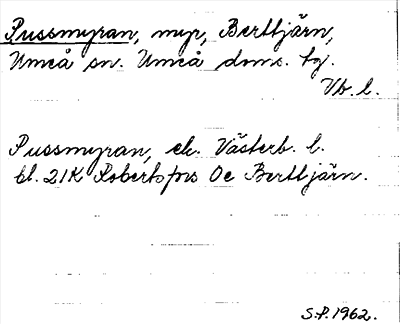 Pussmyran, myr, Berttjärn,
Umeå sn. Umeå doms. tg.
Vb. l.
Pussmyran, ek. Västerb. l.
bl. 21K Robertsfors Oe Berttjärn.
S.P. 1962.